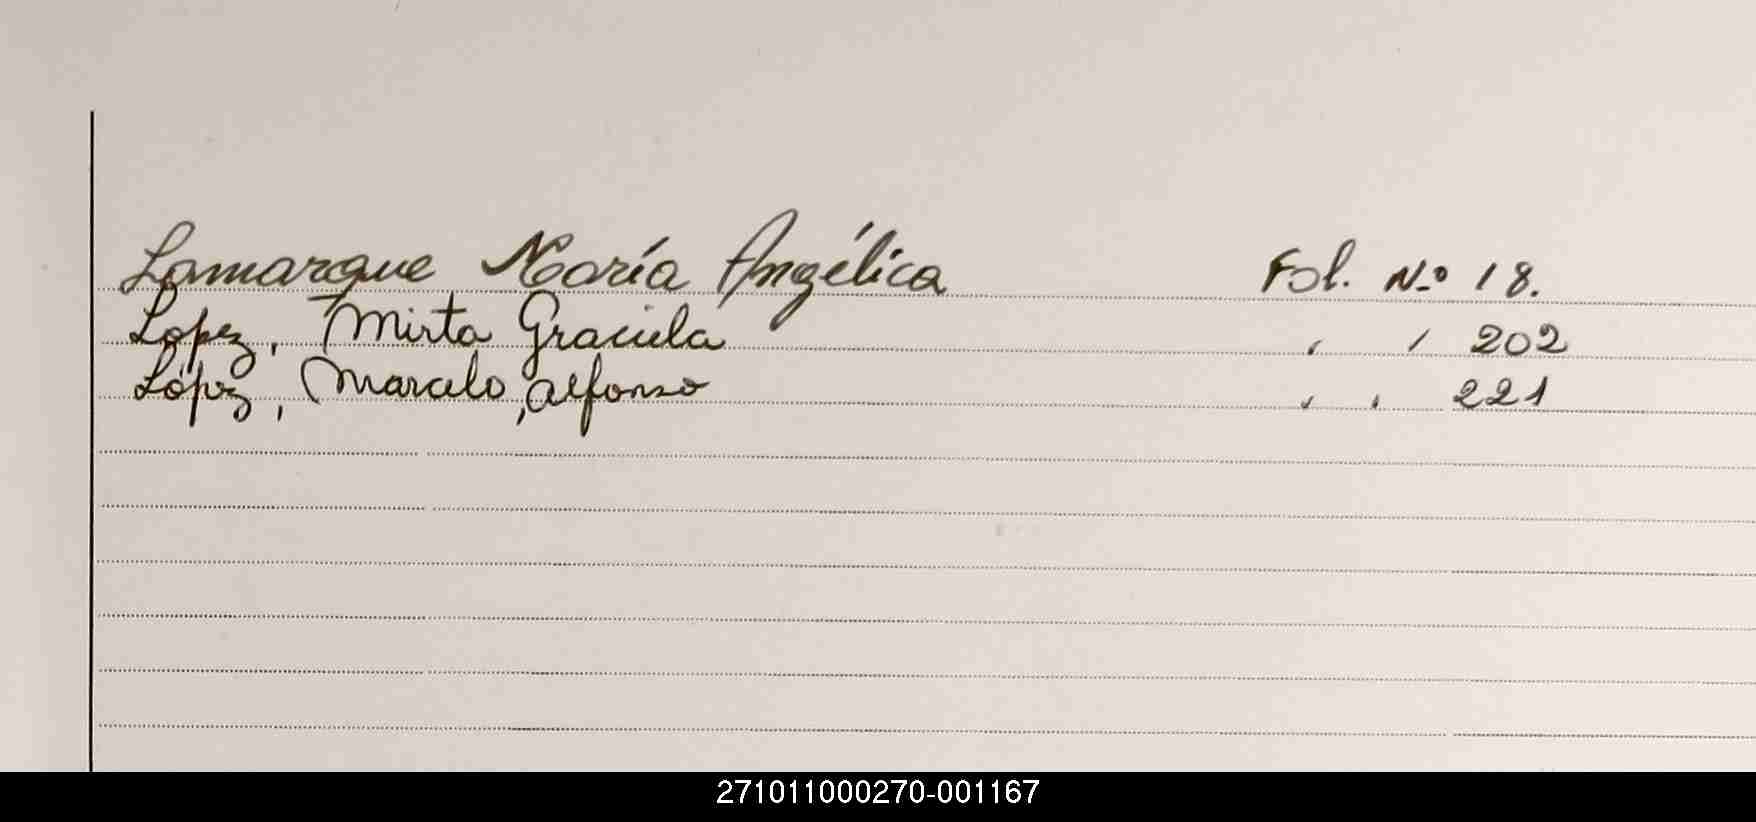 Lamarque María Angélica Fol. No 18.
Lopez, Mirta Graciela " " 202
López, Marcelo, Alfonso " " 221
271011000270-001167